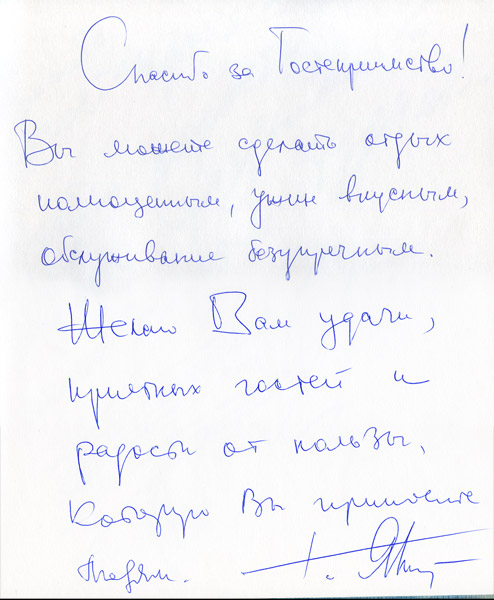 Спасибо за Гостеприимство!
Вы можете сделать отдых
полноценным, ужин вкусным,
обслуживание безупречным.
Желаю Вам удачи,
приятных гостей и
радости от пользы,
которую Вы приносите
людям. Г.